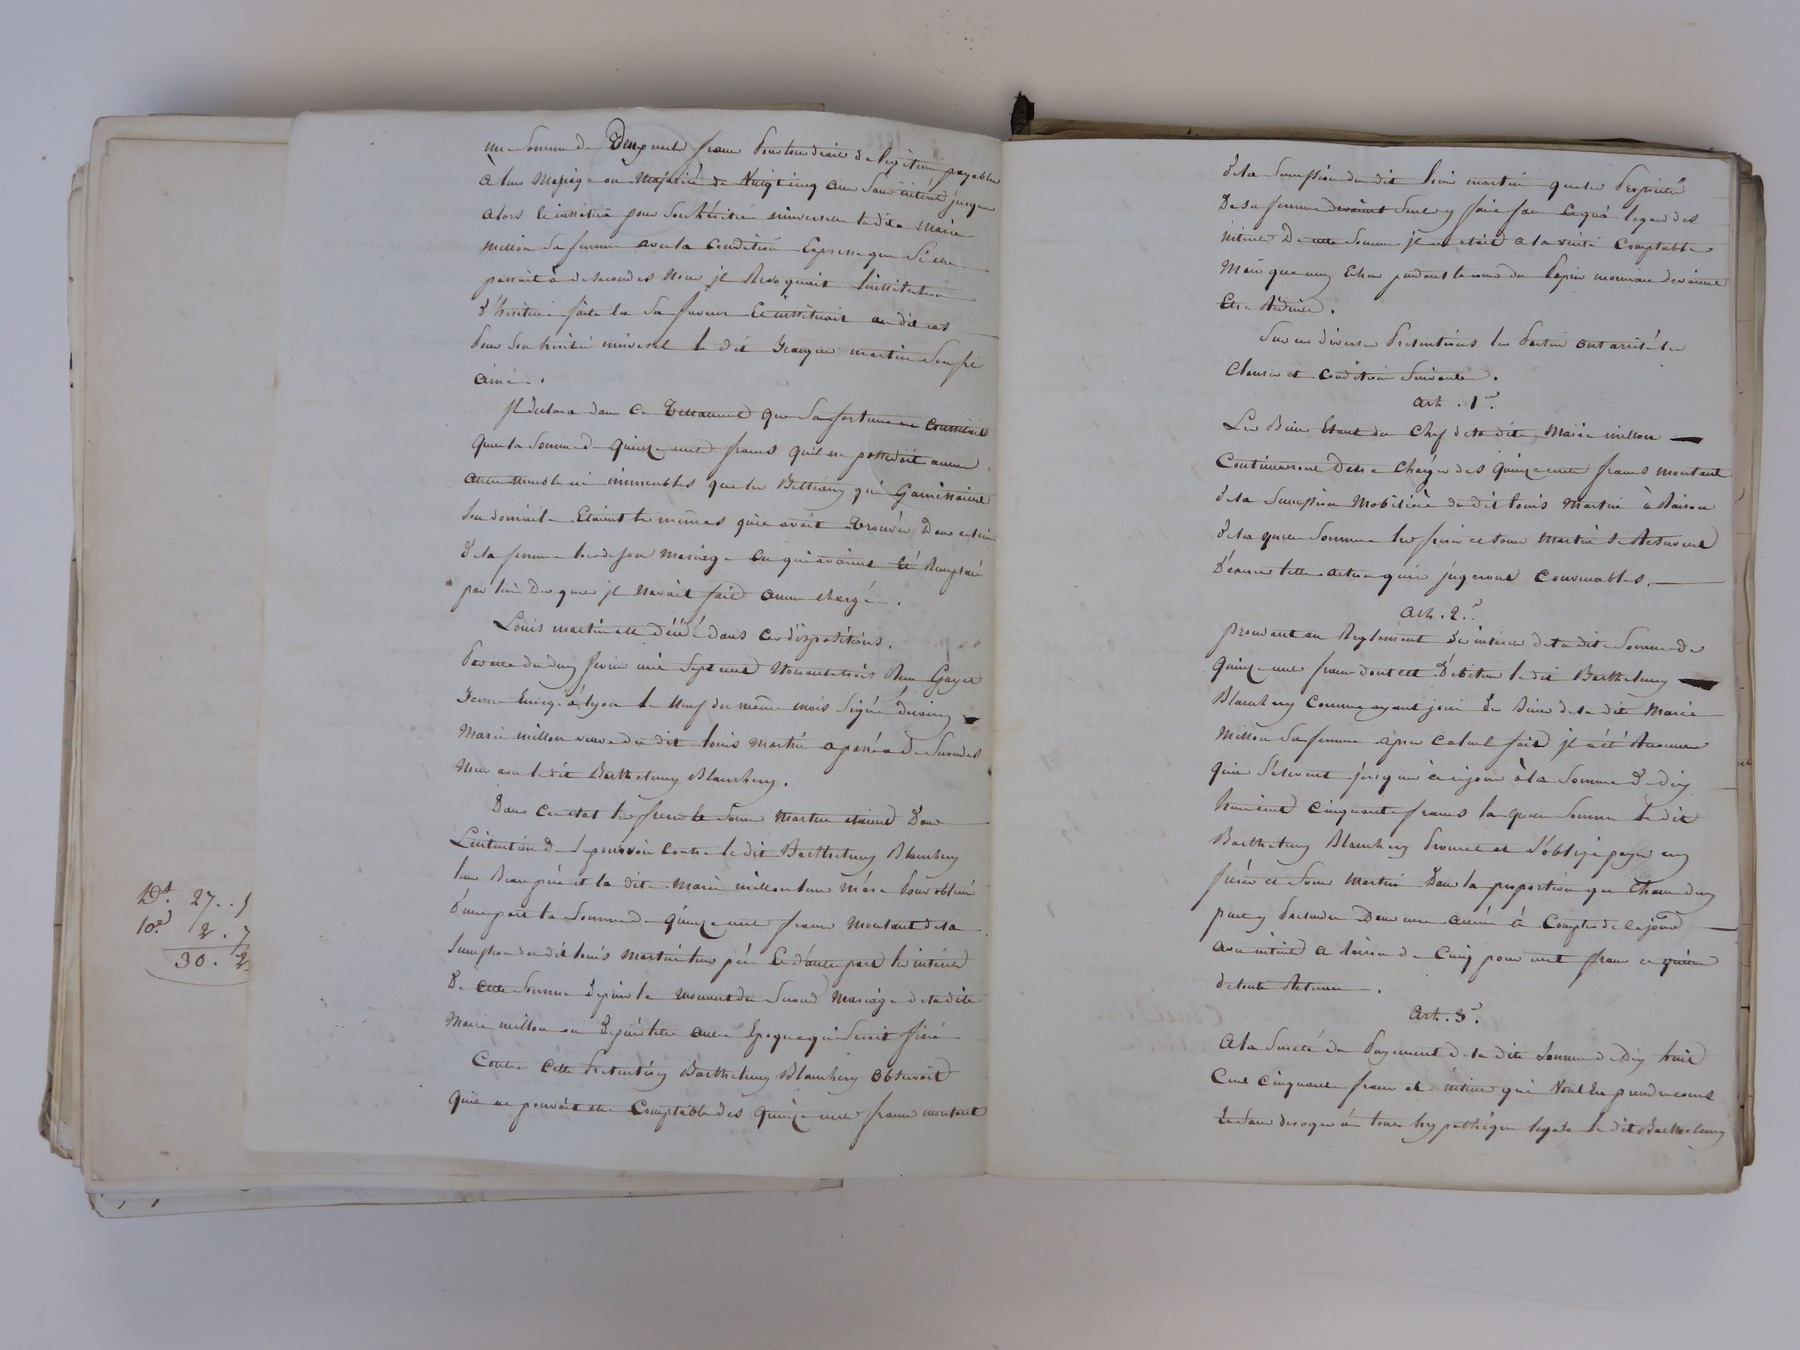 une Somme de Deux mille francs Pour tous droits de légitime payable
à leur Mariage ou Majorité de Vingt cinq ans Sans intérêt jusques
alors Et institua pour Son héritière universelle la dite Marie
millon Sa femme avec la Condition Expresse que Si elle
passait à de secondes Noces il Révoquait l'institution
d'héritière faite En Sa faveur Et instituait au dit cas
Pour Son héritier universel le dit martin Son fils
ainé.
Il déclara dans Ce Testament que Sa fortune ne Consistait
Que la Somme de quinze mille francs qu'il ne possedoit aucun
autre meuble ni immeubles que les Bestiaux qui Garnissaient
Son domicile Etaient les mêmes qu'il avoit trouvés Dans celui
de la femme lors de son Mariage ou qui avaient été Remplacés
par lui Desquels il N'avait fait aucun changé.
Louis martin est décédé dans Ces dispositions.
Par acte du dix février mil Sept cent Nonante trois Reçu Goyet
Notaire Enreg. à lyon le Neuf du même mois Signé
Marie millon veuve du dit louis Martin a passé à De Secondes
Noces avec le dit Barthelemy Blanchery.
Dans Cet état les freres et Soeur Martin etaient Dans
L'intention De Se pourvoir Contre le dit Barthelemy Blanchery
leur Beau père et la dite Marie millon leur Mère Pour obtenir
D'une part la Somme de quinze mille francs Montant de la
Succession du dit louis Martin leur père Et d'autre part les intérêts
De cette Somme Depuis le Moment du Second Mariage de la dite
Marie millon ou Depuis telle autre Epoque qui Seroit fixée
Contre Cette Prétention Barthelemy Blanchery observoit
Qu'il ne pouvait être Comptable des quinze mille francs montant
Dt. 27..5
10e 2.7
30.2
de la Succession du dit louis martin que les Propriétés
De sa femme devaient Seules y faire face Et qu'à l'égard des
intérêts De cette Somme il en etait à la vérité Comptable
Mais que ceux Echus pendant le cours du Papier monnaie devoient
Etre Réduits.
Sur ces diverses Prétentions les Parties ont arrêté les
Clauses et Conditions Suivantes.
Art. 1er.
Les Biens Etant du Chef de la dite Marie millon
Continueront D'être Chargés des quinze mille francs montant
de la Succession Mobilière du dit louis Martin à Raison
de la quelle Somme les freres et Soeur Martin Se Réservent
D'exercer telle action qu'ils jugeront Convenables.
Art. 2e.
Procédant au Reglement Des intérêts de la dite Somme de
Quinze mille francs dont est Débiteur le dit Barthelemy
Blanchery Comme ayant joui Des Biens de la dite Marie
Millon Sa femme après Calcul fait il a été Reconnu
Qu'ils S'élevent jusques à ce jour à la Somme De dix
huit cent Cinquante francs la quelle Somme le dit
Barthelemy Blanchery Promet et S'oblige payer aux
frères et Soeur Martin Dans la proportion que Chacun deux
peut y Prétendre Dans une année à Compter de ce jour
Avec intérêt à Raison de Cinq pour cent francs et quitte
de toute Retenue.
Art. 3e.
A la Sureté du Payement de la dite Somme de Dix huit
Cent Cinquante francs et intérêts qui Vont En prendre cours
Et Sans déroger à leur hypothèque légale le dit Barthelemy